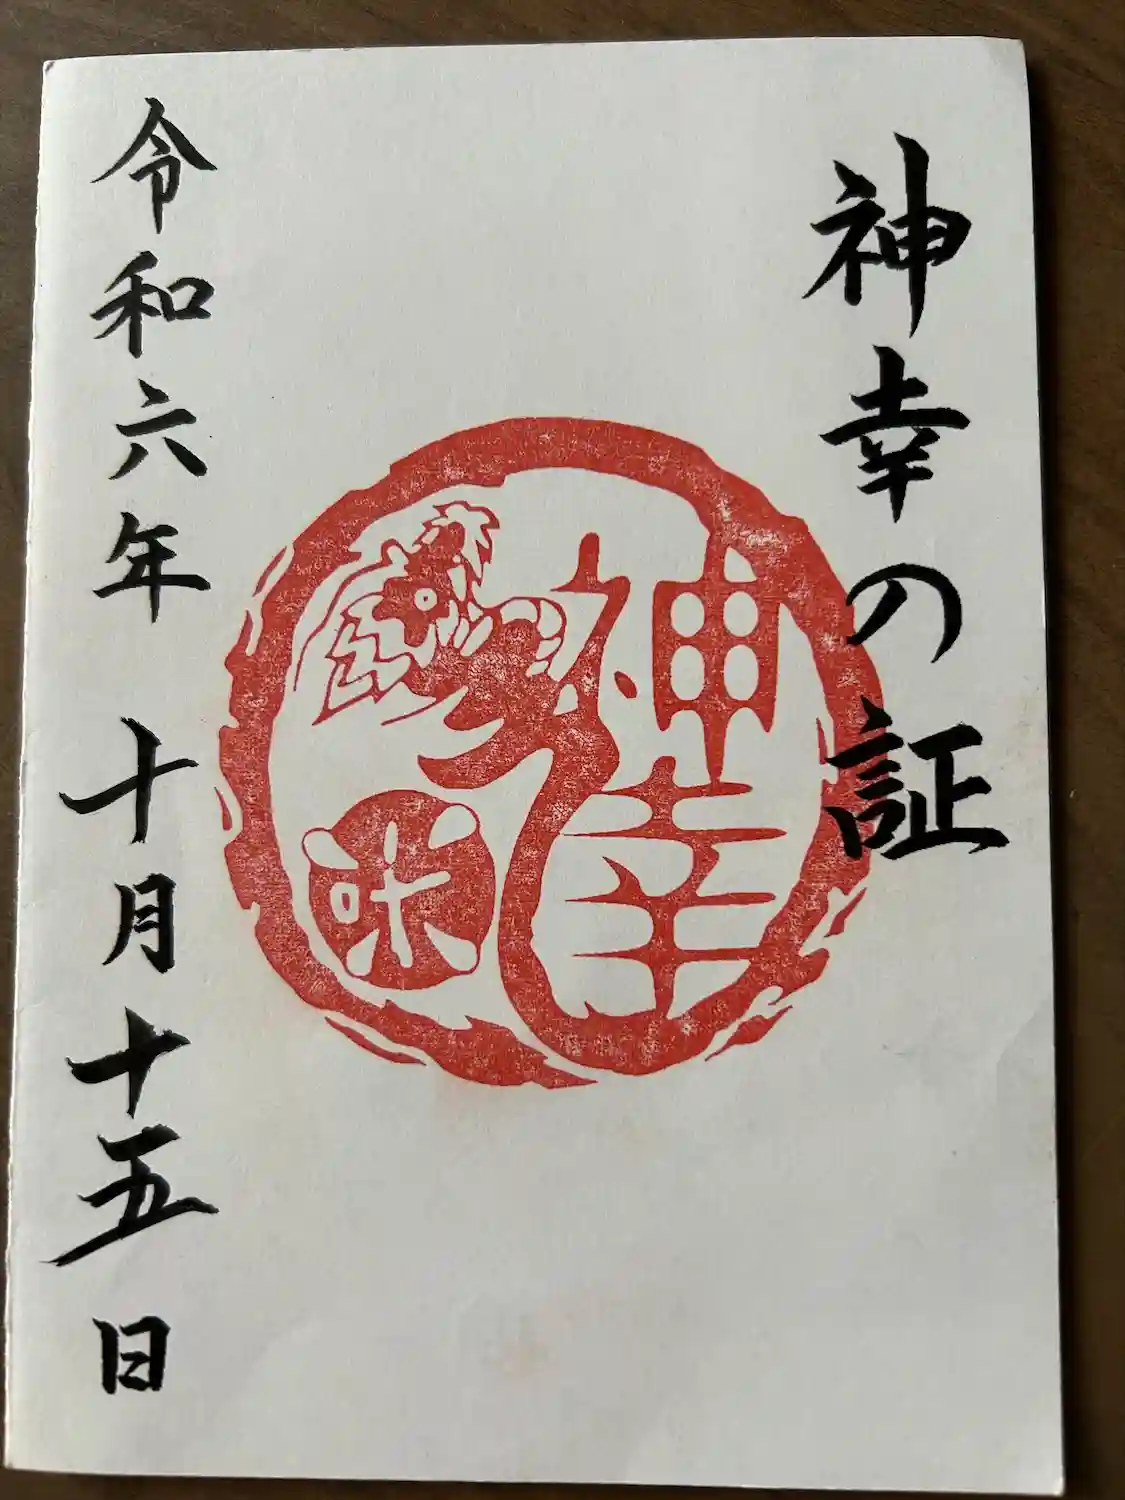 神幸の証
神幸
令和六年 十月十五日